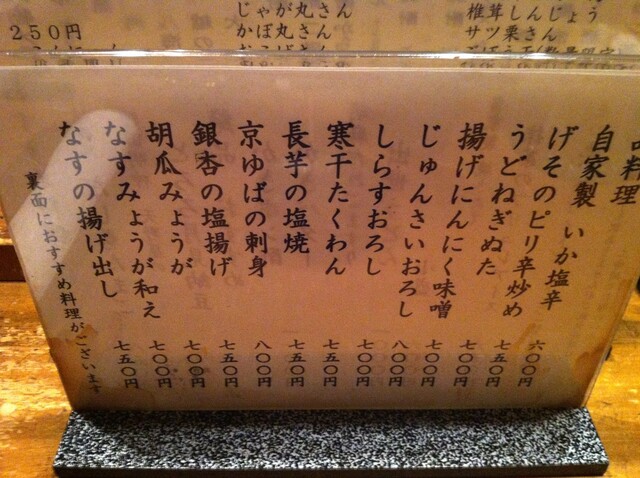 椎茸しんじょう
サツ栗さん
じゃが丸さん
かぼ丸さん
250円
品料理
自家製 いか塩辛 六〇〇円
げそのピリ辛炒め 七五〇円
うどねぎぬた 七〇〇円
揚げにんにく味噌 七〇〇円
じゅんさいおろし 八〇〇円
しらすおろし 七〇〇円
寒干たくわん 七五〇円
長芋の塩焼 七五〇円
京ゆばの刺身 八〇〇円
銀杏の塩揚げ 七五〇円
胡瓜みょうが 七〇〇円
なすみょうが和え 七〇〇円
なすの揚げ出し 七五〇円
裏面におすすめ料理がございます